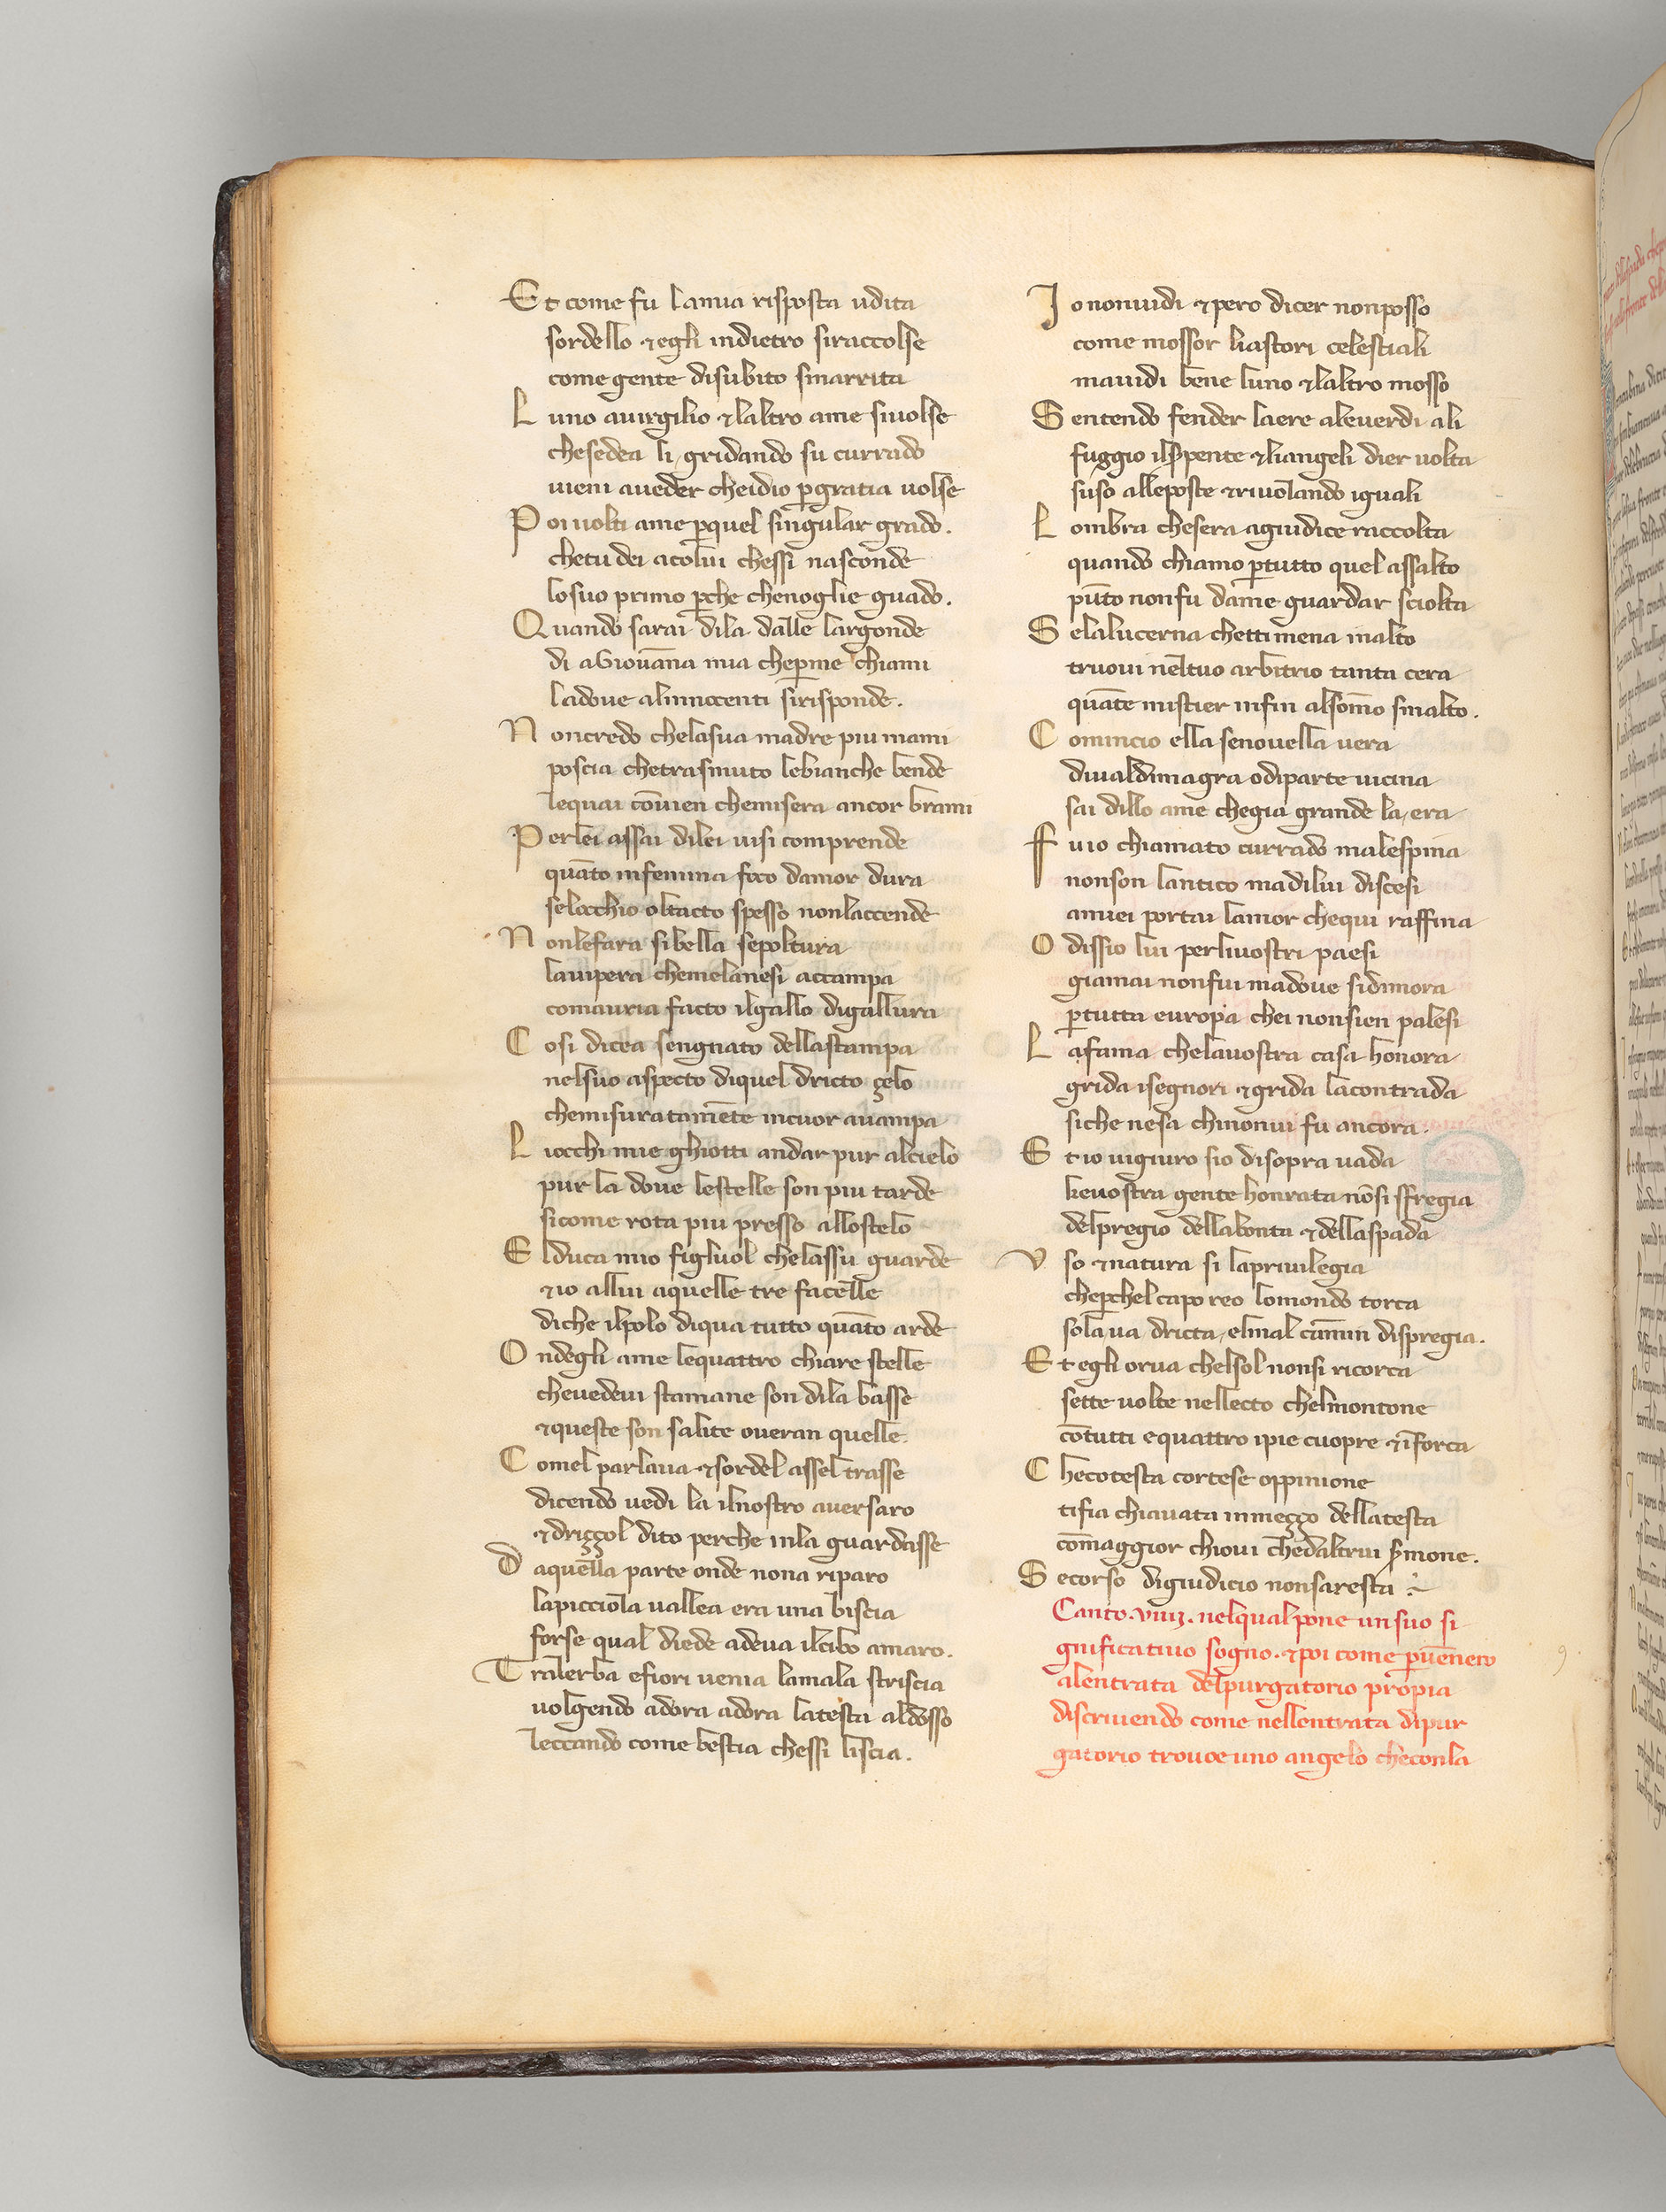 Et come fu lamia risposta udita
sordello ⁊egli indietro siraccolse
come gente disubito smarrita
Luno auirgilio ⁊laltro ame siuolse
chesedea li, gridando su currado
uieni aueder cheidio p̲gratia uolse
Poi uolti ame p̲quel singular grado.
chetu dei acolui chessi nasconde
losuo primo p̲che chenoglie guado.
Quando sarai dila dalle largonde
di aGiouāna mia chep̲me chiami
ladoue alinnocenti sirisponde.
Noncredo chelasua madre piu mami
poscia chetrasmuto lebianche bende
lequai cōuien chemisera ancor brami
Perlei assai dilei uisi comprende
quāto infemina foco damor dura
selocchio oltacto spesso nonlaccende
Nonlefara sibella sepoltura
lauipera chemelanesi accampa
comauria facto ilgallo digallura
Cosi dicea sengnato dellastampa
nelsuo aspecto diquel dricto çelo
chemisuratamēte incuor auampa
Liocchi mie ghiotti andar pur alcielo
pur la doue lestelle son piu tarde
sicome rota piu presso allostelo
Elduca mio figliuol chelassu guarde
⁊io allui aquelle tre facelle
diche ilpolo diqua tutto quāto arde
Ondegli ame lequattro chiare stelle
cheuedeui stamane son dila basse
⁊queste son salite oueran quelle.
Comel parlaua ⁊sordel assel trasse
dicendo uedi la ilnostro auersaro
⁊drizzol dito perche inla guardasse
Daquella parte onde nona riparo
lapicciola uallea era una biscia
forse qual diede adeua ilcibo amaro.
Tralerba efiori uenia lamala striscia
uolgendo adora adora latesta aldosso
leccando come bestia chessi liscia.
Jo nonuidi ⁊pero dicer nonposso
come mossor liastori celestiali
mauidi bene luno ⁊laltro mosso
Sentendo fender laere aleuerdi ali
fuggio ilsp̲ente ⁊liangeli dier uolta
suso alleposte ⁊riuolando iguali
Lombra chesera agiudice raccolta
quando chiamo p̲tutto quel assalto
pūto nonfu dame guardar sciolta
Selalucerna chettimena inalto
truoui neltuo arbitrio tanta cera
quāte mistier infin alsōmo smalto.
Comincio ella senouella uera
diualdimagra odiparte uicina
sai dillo ame chegia grande la, era
Fuio chiamato currado malespina
nonson lantico madilui discesi
amiei portai lamor chequi raffina
O dissio lui perliuostri paesi
giamai nonfui madoue sidimora
p̲tutta europa chei nonsien palesi
Lafama chelauostra casa honora
grida isegnori ⁊grida lacontrada
siche nesa chinonui fu ancora.
Et io uigiuro sio disopra uada
keuostra gente honrata nōsi sfregia
delpregio dellaborsa ⁊dellaspada
Uso ⁊natura si lapriuilegia
chep̲chel capo reo lomondo torca
sola ua dricta, elmal cāmin dispregia.
Et egli orua chelsol nonsi ricorca
sette uolte nellecto chelmontone
cōtutti equattro ipie cuopre ⁊īforca
Checotesta cortese oppinione
tifia chiauata inmeçço dellatesta
cōmaggior chioui chedaltrui s̲mone.
Secorso digiudicio nonsaresta :~
Canto. viiij. nelqual pone un suo si
gnificatiuo sogno. ⁊poi come p̲uēnero
alentrata delpurgatorio propia
discriuendo come nellentrata dipur
gatorio trouoe uno angelo checonla